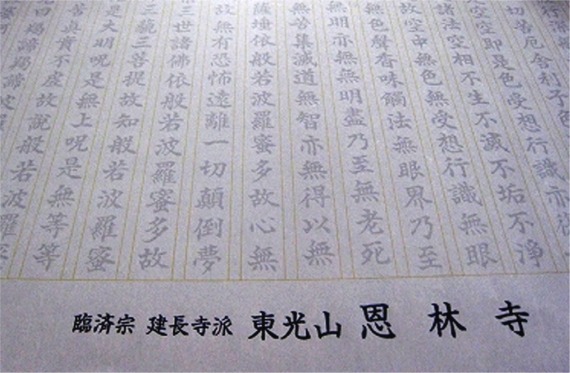 切苦厄舍利子色
空空即是色受想行識亦復
諸法空相不生不滅不垢不淨
故空中無色無受想行識無眼
無色聲香味觸法無眼界乃至
無明亦無無明盡乃至無老死
無苦集滅道無智亦無得以無
薩埵依般若波羅蜜多故心無
故無有恐怖遠離一切顛倒夢
世諸佛依般若波羅蜜多故
三藐三菩提故知般若波羅蜜
是大明呪是無上呪是無等等
苦真實不虛故說般若波羅蜜
曰揭諦揭諦波羅
臨済宗 建長寺派 東光山 恩林寺